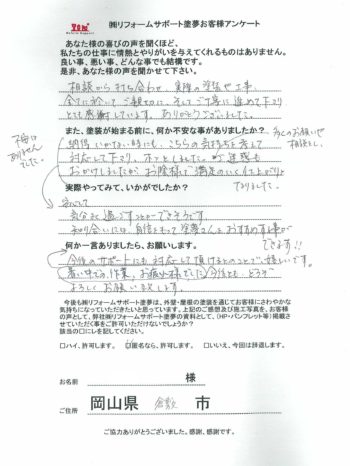 ㈱リフォームサポート塗夢お客様アンケート
あなた様の喜びの声を聞くほど、
私たちの仕事に情熱とやりがいを与えてくれるものはありません。
良い事、悪い事、どんな事でも結構です。
是非、あなた様の声を聞かせて下さい。
相談から打ち合わせ、実際の塗装や工事、
全てに於いてご親切に、そしてご丁寧に進めて下さり
とても感謝しています。ありがとうございました。
また、塗装が始まる前に、何か不安な事がありましたか?
不安は
ありません
でした。
納得いかない時にも、こちらの気持ちを考えて
対応して下さり、ホッとしました。
おかけしましたが お陰様で 満足のいく仕上がりと
なりました。
実際やってみて、いかがでしたか?
安心して
気分よく過ごすことができそうです。
知り合いには、自信をもって塗夢さんをおすすめする事が
できます!!
何か一言ありましたら、お願いします。
今後のサポートにも対応して頂けるとのことで、嬉しいです。
暑い中での作業、お疲れ様でした。今後とも、どうぞ
よろしくお願い致します。
今後も㈱リフォームサポート塗夢は、外壁・屋根の塗装を通じてお客様にさわやかな
気持ちになっていただきたいと思っています。上記のご感想及び施工写真を、お客様
の声として、弊社㈱リフォームサポート塗夢の資料として、(HP・パンフレット等)掲載さ
せていただく事をご許可いただけないでしょうか?
該当の□にレを記してください。
□ハイ、許可します。 ☑匿名なら、許可します。 □いいえ、今回は辞退します。
お名前 様
ご住所 岡山県 倉敷 市
ご協力ありがとうございました。感謝、感謝です。